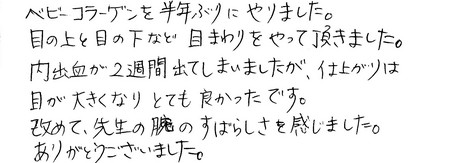 ベビーコラーゲンを半年ぶりにやりました。
目の上と目の下など目まわりをやって頂きました。
内出血が2週間出てしまいましたが、仕上がりは
目が大きくなりとても良かったです。
改めて、先生の腕のすばらしさを感じました。
ありがとうございました。